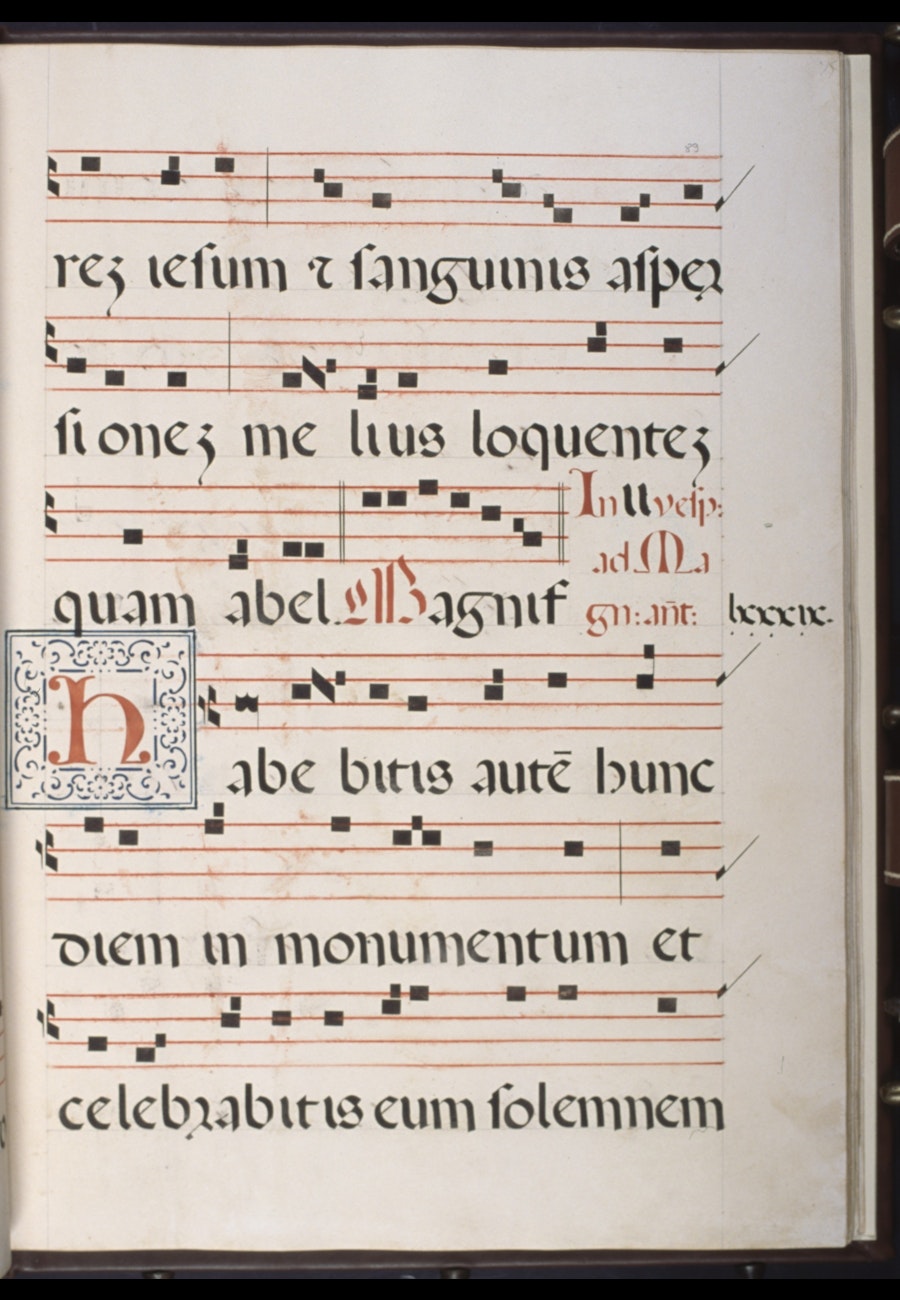 89
rez iesum ⁊ sanguinis asper
si onez me lius loquentez
quam abel. Magnif
In II vesp:
ad Ma
gn: añt: lxxxix.
habe bitis autē hunc
diem in monumentum et
celebrabitis eum solemnem